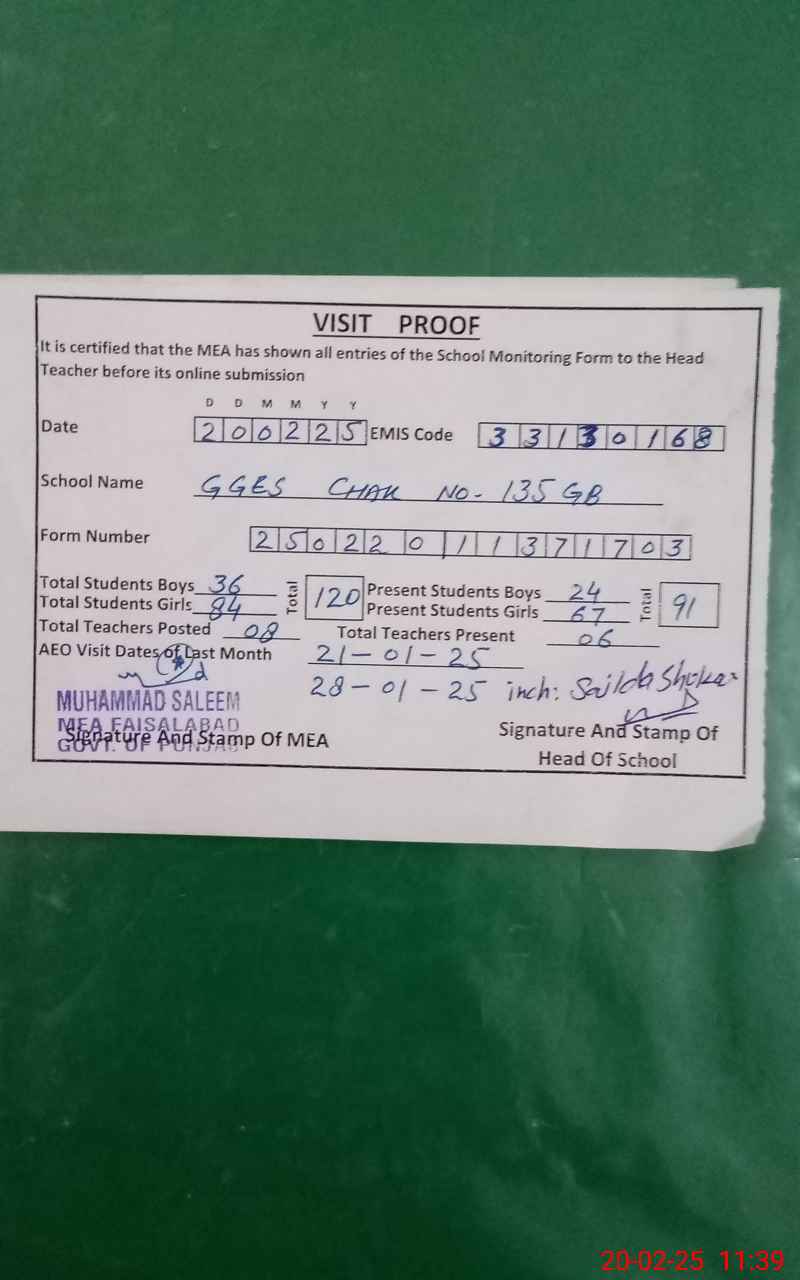 VISIT PROOF
It is certified that the MEA has shown all entries of the School Monitoring Form to the Head
Teacher before its online submission
D D M M Y Y
Date 200225 EMIS Code 33130168
School Name GGES CHAK NO- 135 GB
Form Number 25022011371703
Total Students Boys 36 Total 120 Present Students Boys 24 Total 91
Total Students Girls 84 Present Students Girls 67
Total Teachers Posted 08 Total Teachers Present 06
AEO Visit Dates of Last Month 21-01-25
28-01-25 inch:
MUHAMMAD SALEEM
MEA FAISALABAD
GOVT. OF PUNJAB
Signature And Stamp Of MEA
Signature And Stamp Of
Head Of School
20-02-25 11:39